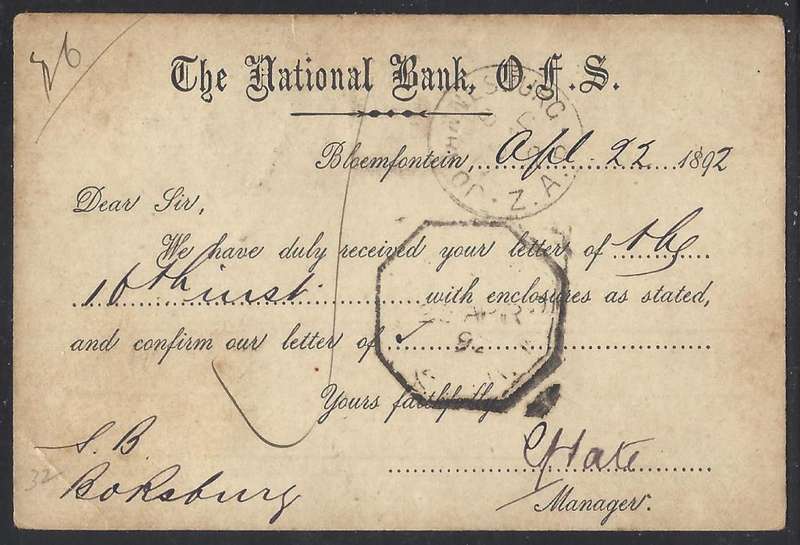 26
The National Bank, O.F.S.
Bloemfontein, Apl. 22 1892
Dear Sir,
We have duly received your letter of the
16th inst. with enclosures as stated,
and confirm our letter of
Yours faithfully
S. B.
Boksburg
32
Manager.
JOHANNESBURG
Z.A.R.
APR
92